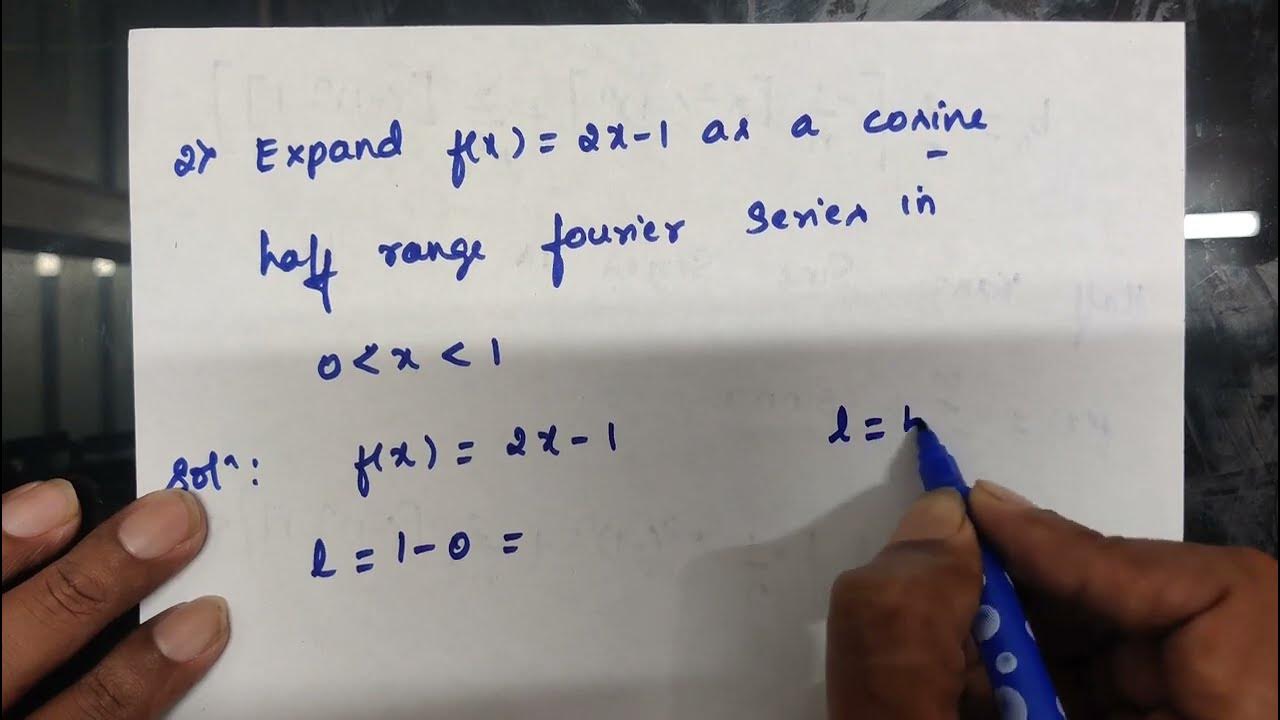 2) Expand f(x) = 2x-1 as a cosine
half range fourier series in
0 < x < 1
Solⁿ: f(x) = 2x - 1
l =
l = 1 - 0 =